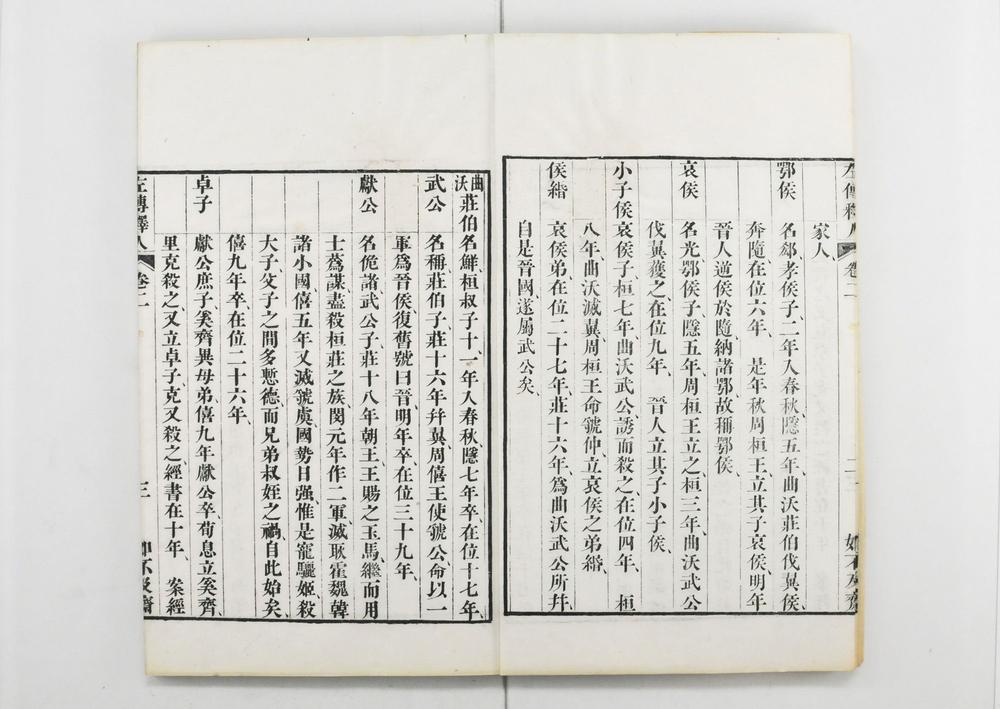 家人
鄂侯 名郄孝侯子二年入春秋隱五年曲沃莊伯伐異侯
奔隨在位六年 是年秋周桓王立其子哀侯明年
晉人逆侯於隨納諸鄂故稱鄂侯
哀侯 名光鄂侯子隱五年周桓王立之桓三年曲沃武公
伐異獲之在位九年 晉人立其子小子侯
小子侯哀侯子桓七年曲沃武公誘而殺之在位四年 桓
八年曲沃滅異周桓王命虢仲立哀侯之弟緡
侯緡 哀侯弟在位二十七年莊十六年爲曲沃武公所幷
自是晉國遂屬武公矣
曲沃莊伯名鮮桓叔子十一年入春秋隱七年卒在位十七年
武公 名稱莊伯子莊十六年幷異周僖王使虢公命以一
軍爲晉侯復舊號曰晉明年卒在位三十九年
獻公 名佹諸武公子莊十八年朝王王賜之玉馬繼而用
士蔿謀盡殺桓莊之族閔元年作二軍滅耿霍魏韓
諸小國僖五年又滅虢虞國勢日强惟是寵驪姬殺
大子父子之間多慙德而兄弟叔姪之禍自此始矣
僖九年卒在位二十六年
卓子 獻公庶子奚齊異母弟僖九年獻公卒荀息立奚齊
里克殺之又立卓子克又殺之經書在十年 案經
左傳釋人 卷二 三